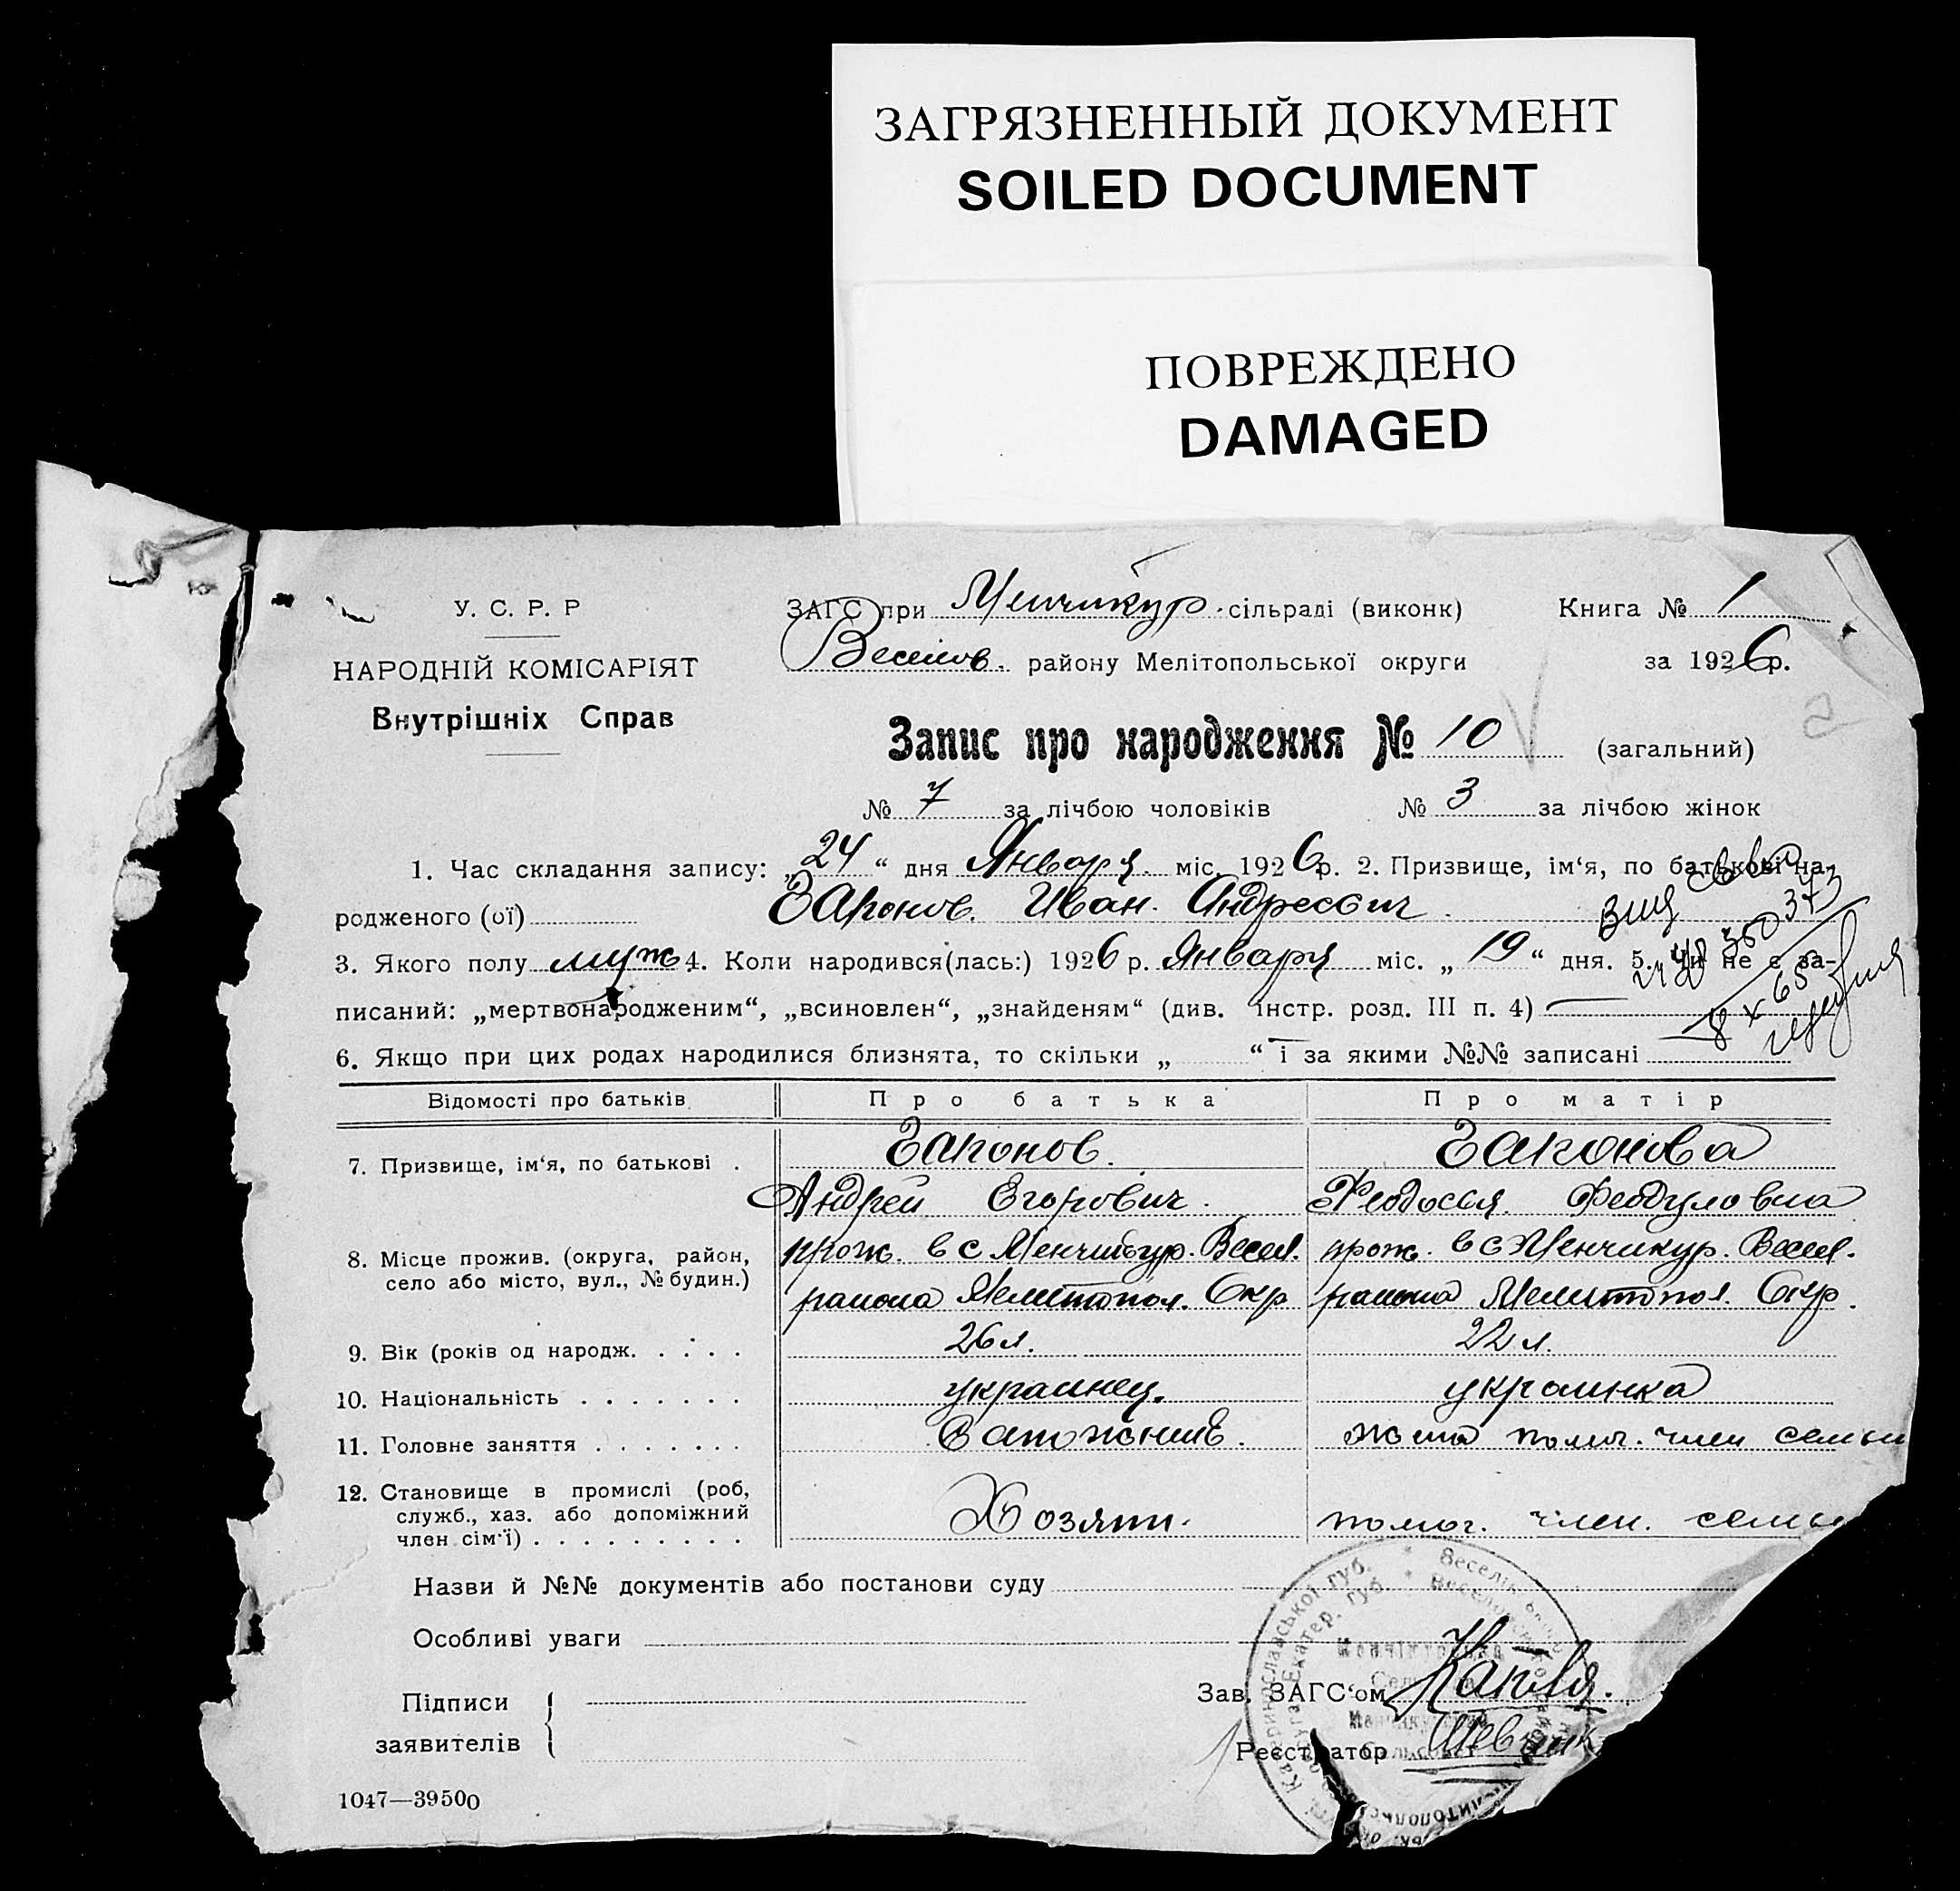 ЗАГРЯЗНЕННЫЙ ДОКУМЕНТ
SOILED DOCUMENT
ПОВРЕЖДЕНО
DAMAGED
У. С. Р. Р
НАРОДНІЙ КОМІСАРІЯТ
Внутрішніх Справ
ЗАГС при Менчикур. сільраді (виконк) Книга № 1
Веселов. району Мелітопольської округи за 1926 р.
Запис про народження № 10 (загальний)
№ 7 за лічбою чоловіків № 3 за лічбою жінок
1. Час складання запису: „24“ дня Января міс. 1926 р. 2. Призвище, ім‘я, по батькові на-
родженого (ої) Иван Андреевич
3. Якого полу муж 4. Коли народився(лась:) 1926 р. Января міс. „19“ дня. 5. Чи не є за-
писаний: „мертвонародженим“, „всиновлен“, „знайденям“ (див. інстр. розд. III п. 4)
6. Якщо при цих родах народилися близнята, то скільки „ “ і за якими №№ записані
Відомості про батьків Про батька Про матір
7. Призвище, ім‘я, по батькові .
Андрей Егорович. Феодосья Феодуловна
8. Місце прожив. (округа, район, село або місто, вул., № будин.) прож. в с Менчикур. Весел. прож. в с Менчикур. Весел.
района Мелитопол. Окр района Мелитопол. Окр.
9. Вік (років од народж. . . . . 26 л. 22 л.
10. Національність . . . . . . . украинец. украинка
11. Головне заняття . . . . . . . жена помог. член семьи
12. Становище в промислі (роб, служб., хаз. або допоміжний член сім‘ї) . . . . . . . . . Хозяин. помог. член. семьи
Назви й №№ документів або постанови суду
Особливі уваги
Підписи заявителів
Зав. ЗАГС‘ом
Реєстратор Шевчик
1047—39500